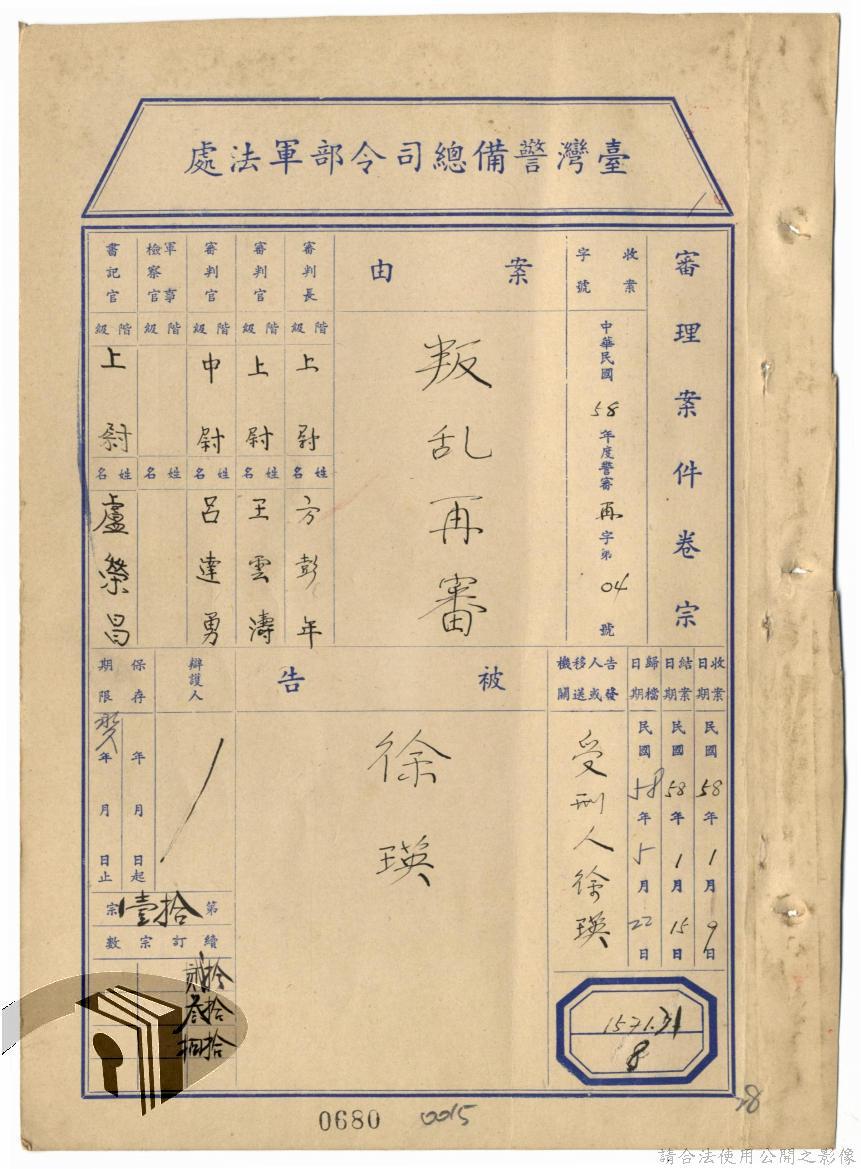 臺灣警備總司令部軍法處
審理案件卷宗
收案字號
中華民國58年度警審再字第04號
案由
叛乱再審
審判長
階級
上尉
姓名
方彭年
審判官
階級
上尉
姓名
王雲濤
審判官
階級
中尉
姓名
呂達勇
軍事檢察官
階級
姓名
書記官
階級
上尉
姓名
盧榮昌
收案日期
民國58年1月9日
結案日期
民國58年1月15日
歸檔日期
民國58年5月22日
告發人或移送機關
受刑人徐瑛
被告
徐瑛
辯護人
保存期限
年月日起
年月日止
第拾壹宗
續訂宗數
拾貳
拾叁
拾肆
1571.31
8
0680
0015
28
請合法使用公開之影像